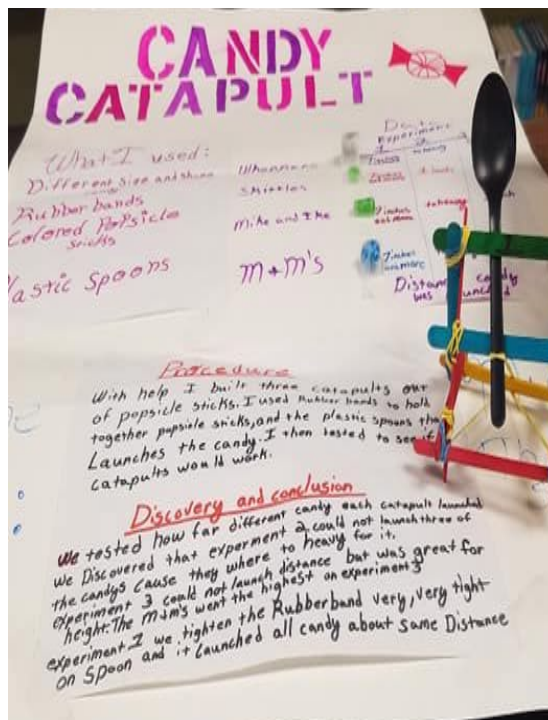 CANDY
CATAPULT
What I used:
Different Size and shape
Rubber bands
Colored Popsicle
Sticks
lastic Spoons
Skittles
Mike and Ike
M+M's
Data
Experiment
7 inches
7 inches
Distance candy
was unched
Procedure
With help I built three catapults out
of popsicle sticks. I used Rubber bands to hold
together popsicle sticks, and the plastic spoons tha
Launches the candy. I then tested to see if
catapults would work.
Discovery and conclusion
We tested how far different candy each catapult launched
we Discovered that experment 2 could not launch three of
the candys cause they where to heavy for it.
experiment 3 could not launch distance but was great for
height. The m+m's went the highest on experiment 3
experiment 1 we tighten the Rubberband very, very tight
on Spoon and it Launched all candy about same Distance